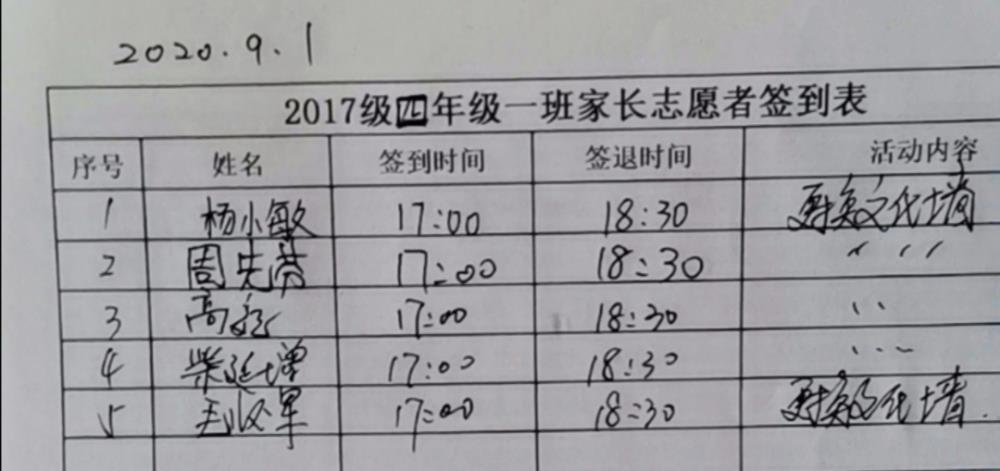 2020.9.1
2017级四年级一班家长志愿者签到表
序号 姓名 签到时间 签退时间 活动内容
1 杨小敏 17:00 18:30 更换文化墙
2 周先芬 17:00 18:30 〃 〃
3 高 17:00 18:30 〃
4 柴延增 17:00 18:30 〃
5 17:00 18:30 更换文化墙